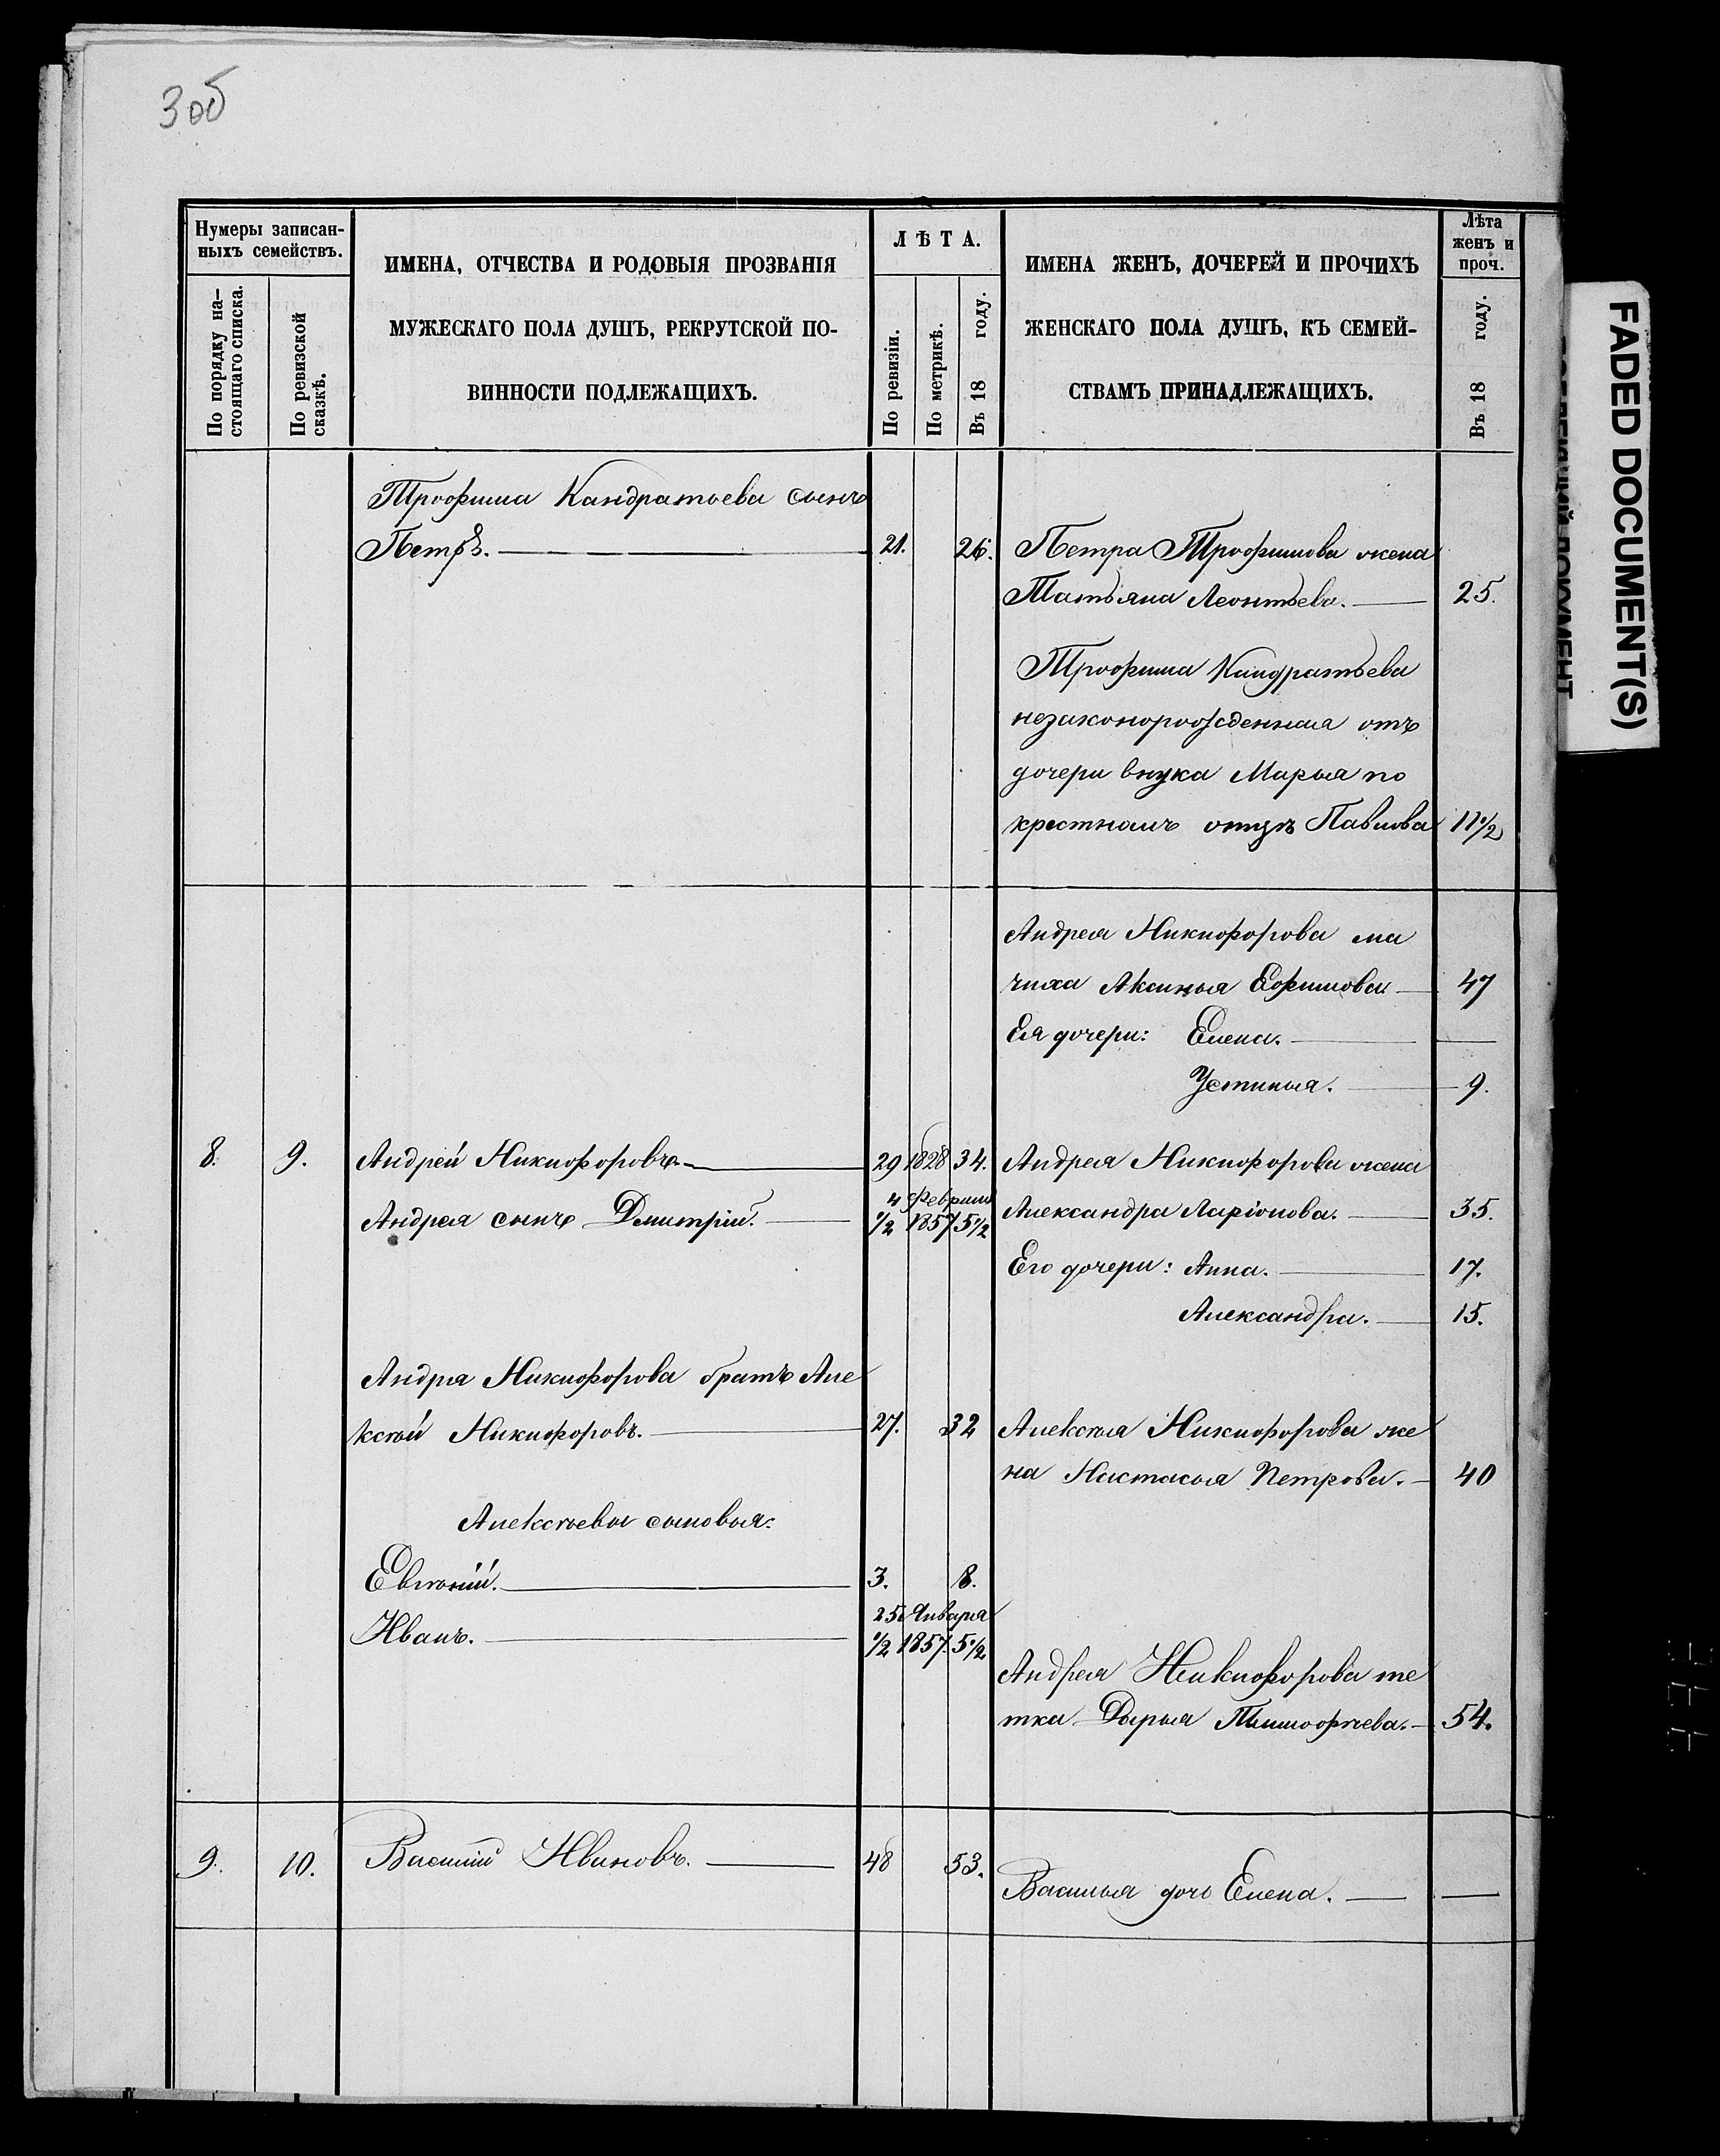 3 об
Нумеры записан-
ныхъ семействъ.
По порядку на-
стоящаго списка.
По ревизской
сказкѣ.
ИМЕНА, ОТЧЕСТВА И РОДОВЫЯ ПРОЗВАНІЯ
МУЖЕСКАГО ПОЛА ДУШЪ, РЕКРУТСКОЙ ПО-
ВИННОСТИ ПОДЛЕЖАЩИХЪ.
ЛѢТА.
По ревизіи.
По метрикѣ.
Въ 18 году.
ИМЕНА ЖЕНЪ, ДОЧЕРЕЙ И ПРОЧИХЪ
ЖЕНСКАГО ПОЛА ДУШЪ, КЪ СЕМЕЙ-
СТВАМЪ ПРИНАДЛЕЖАЩИХЪ.
Лѣта
женъ и
проч.
Въ 18 году.
Трофима Кандратьева сынъ
Петръ. 21. 26. Петра Трофимова жена
Татьяна Леонтьева. 25.
Трофима Кандратьева
незаконорожденная отъ
дочери внука Марья по
крестномъ отцѣ Павлова 11 1/2
Андрея Никифорова ма
чиха Аксинья Ефимова 47
Ея дочери: Елена.
Устинья. 9.
8. 9. Андрей Никифоровъ. 29 1828 34. Андрея Никифорова жена
4 Февраля
Андрея сынъ Дмитрій. 1/2 1857 5 1/2 Александра Ларіонова. 35.
Его дочери: Анна. 17.
Александра. 15.
Андрея Никифорова братъ Але
ксѣй Никифоровъ. 27. 32 Алексѣя Никифорова же
на Настасья Петрова. 40
Алексѣевы сыновья:
Евгеній. 3. 8.
25 Января
Иванъ. 1/2 1857. 5 1/2
Андрея Никифорова те
тка Дарья Тимофѣева. 54.
9. 10. Василій Ивановъ. 48 53.
Василья дочь Елена.
FADED DOCUMENT(S)